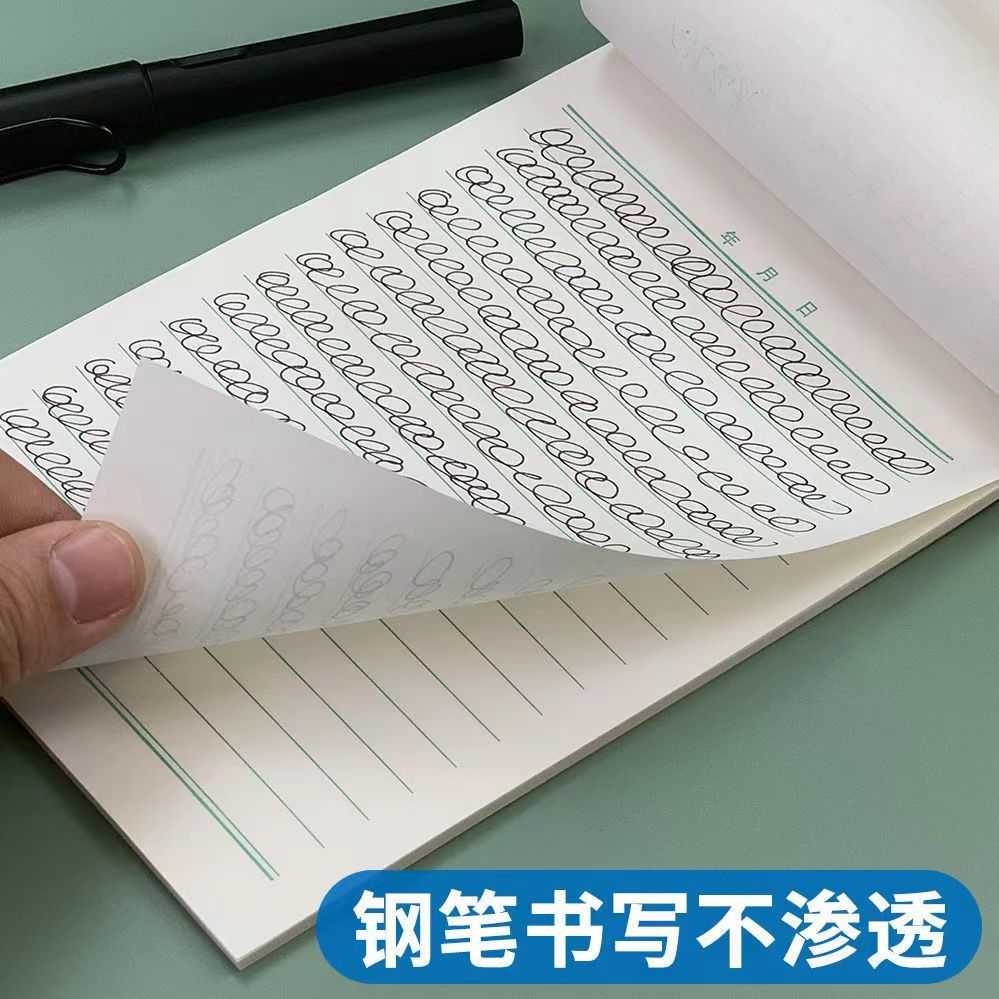 年 月 日
钢笔书写不渗透